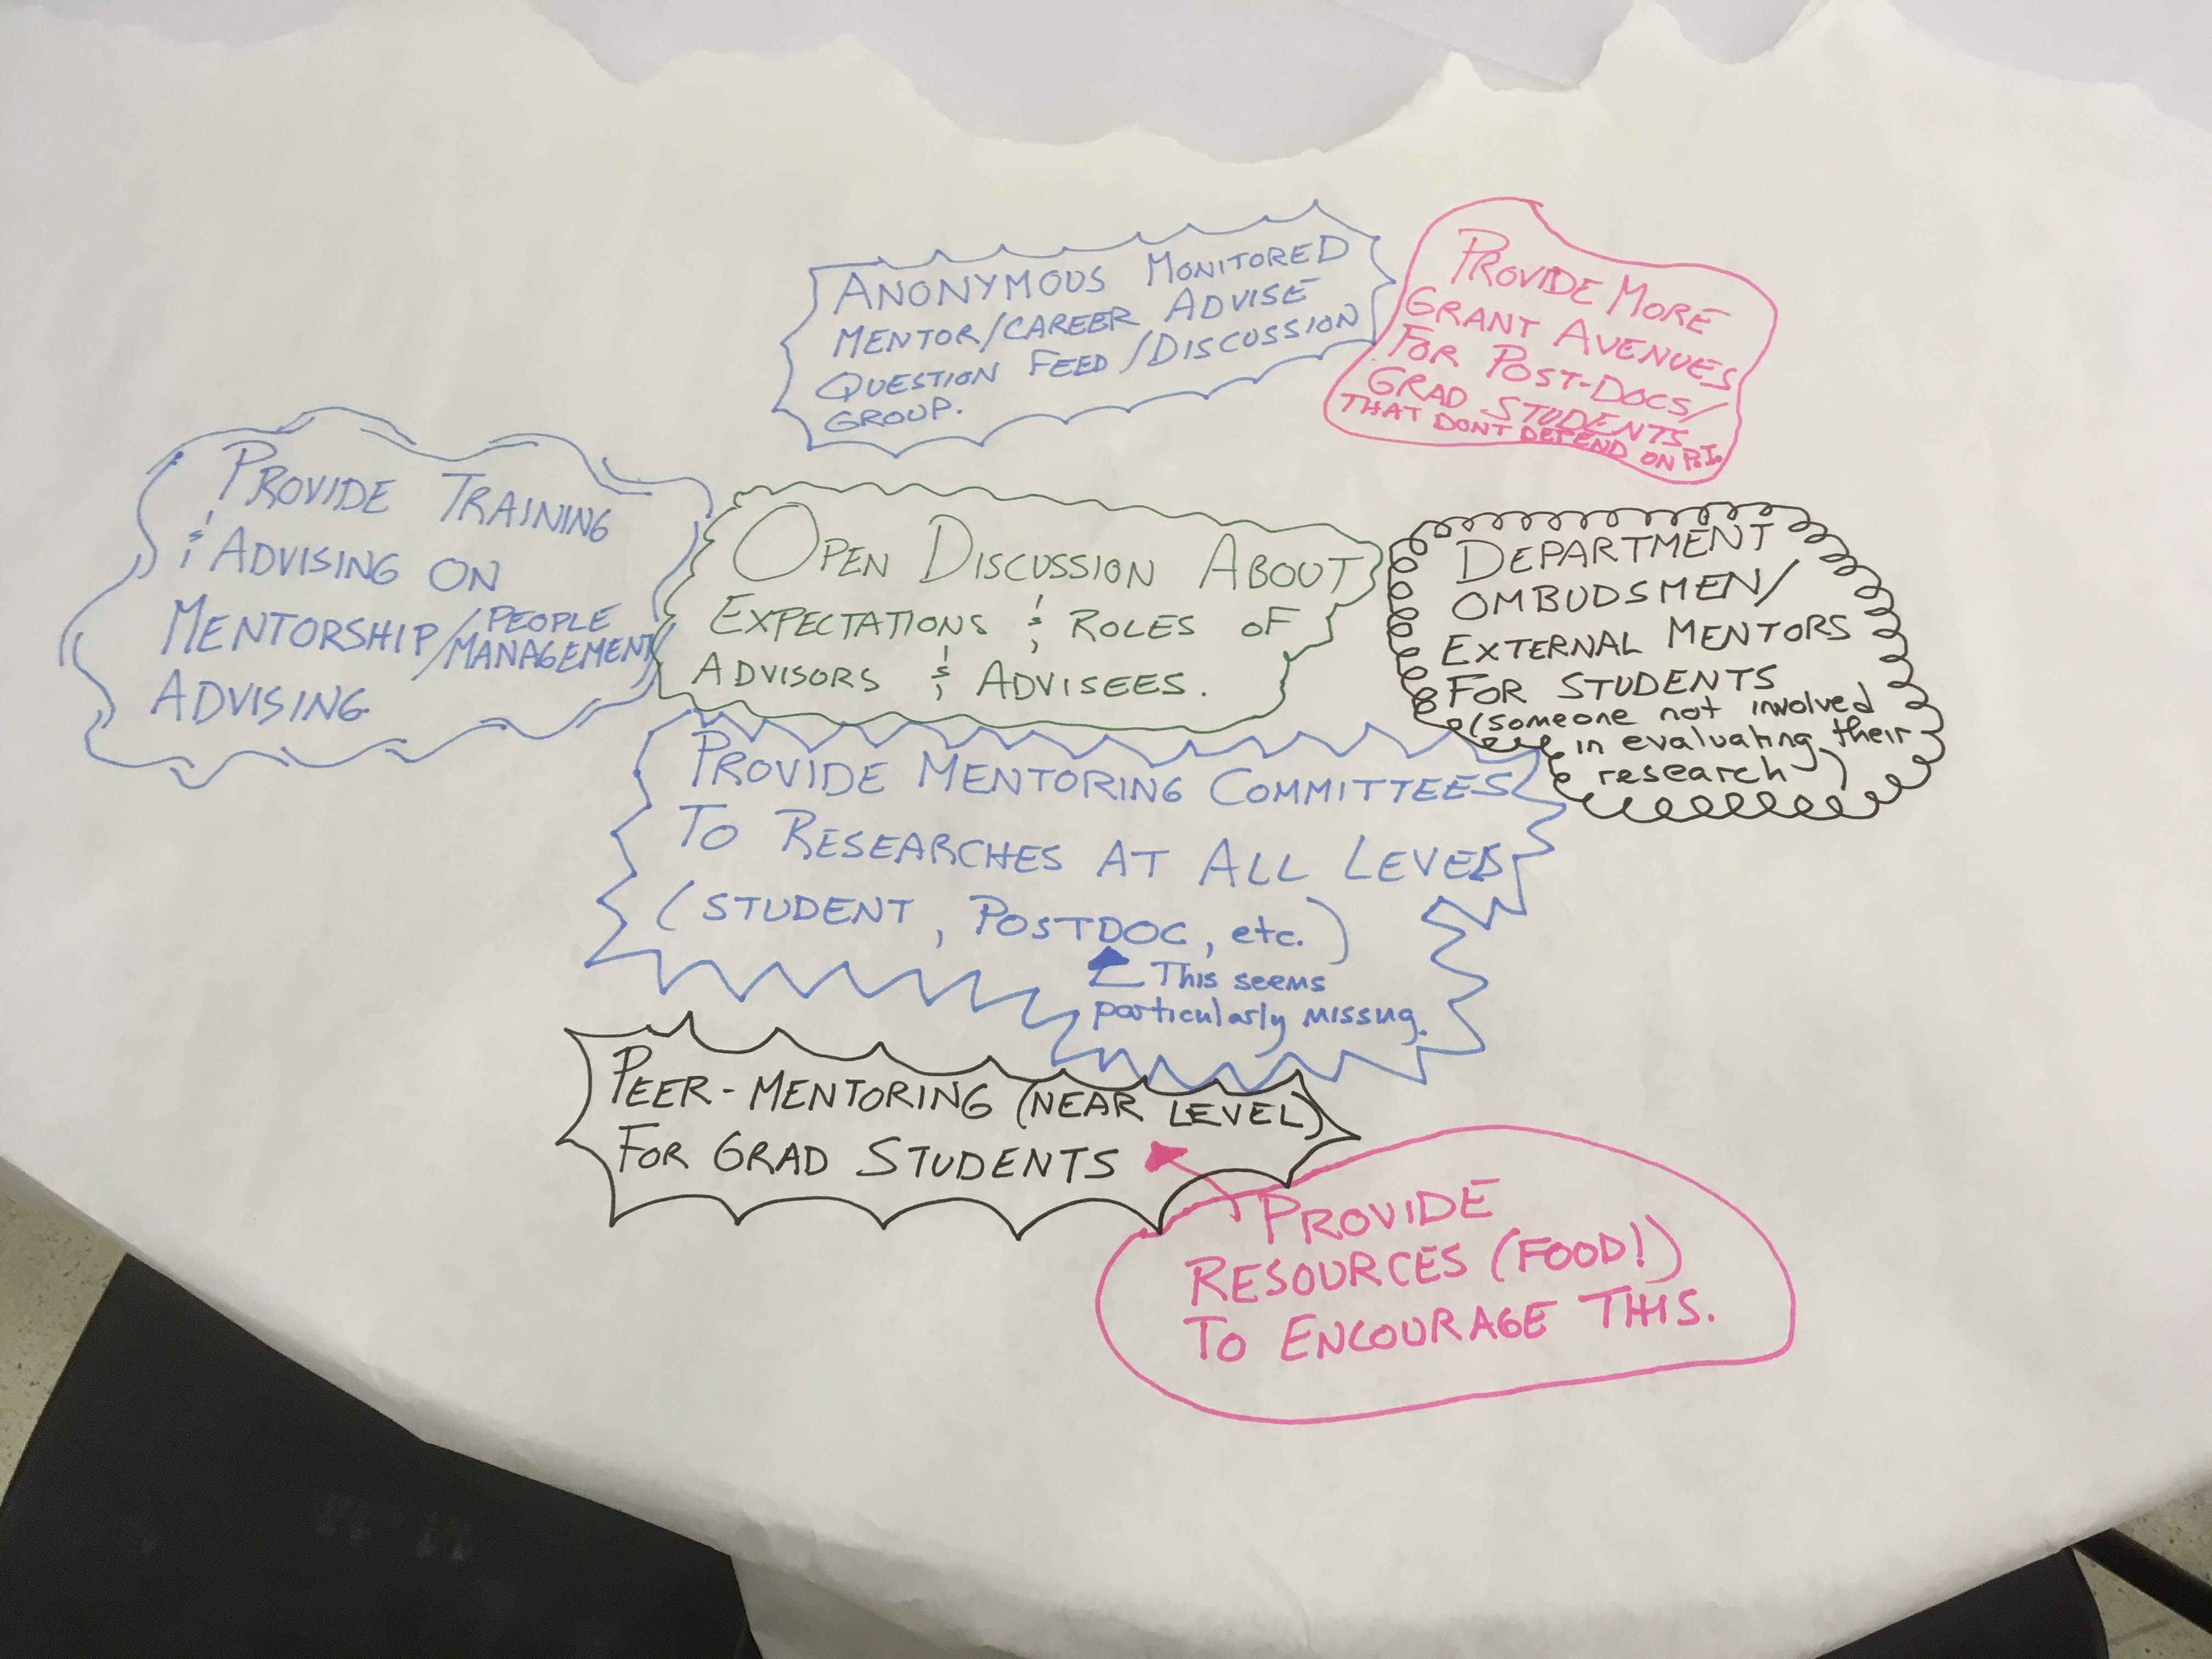 ANONYMOUS MONITORED
MENTOR/CAREER ADVISE
QUESTION FEED/DISCUSSION
GROUP.
PROVIDE MORE
GRANT AVENUES
FOR POST-DOCS/
GRAD STUDENTS
THAT DONT DEPEND ON P.I.
PROVIDE TRAINING
& ADVISING ON
MENTORSHIP/PEOPLE
MANAGEMENT
ADVISING
OPEN DISCUSSION ABOUT
EXPECTATIONS & ROLES OF
ADVISORS & ADVISEES.
DEPARTMENT
OMBUDSMEN/
EXTERNAL MENTORS
FOR STUDENTS
(someone not involved
in evaluating their
research)
PROVIDE MENTORING COMMITTEES
TO RESEARCHES AT ALL LEVELS
(STUDENT, POSTDOC, etc.)
This seems
particularly missing.
PEER-MENTORING (NEAR LEVEL)
FOR GRAD STUDENTS
PROVIDE
RESOURCES (FOOD!)
TO ENCOURAGE THIS.